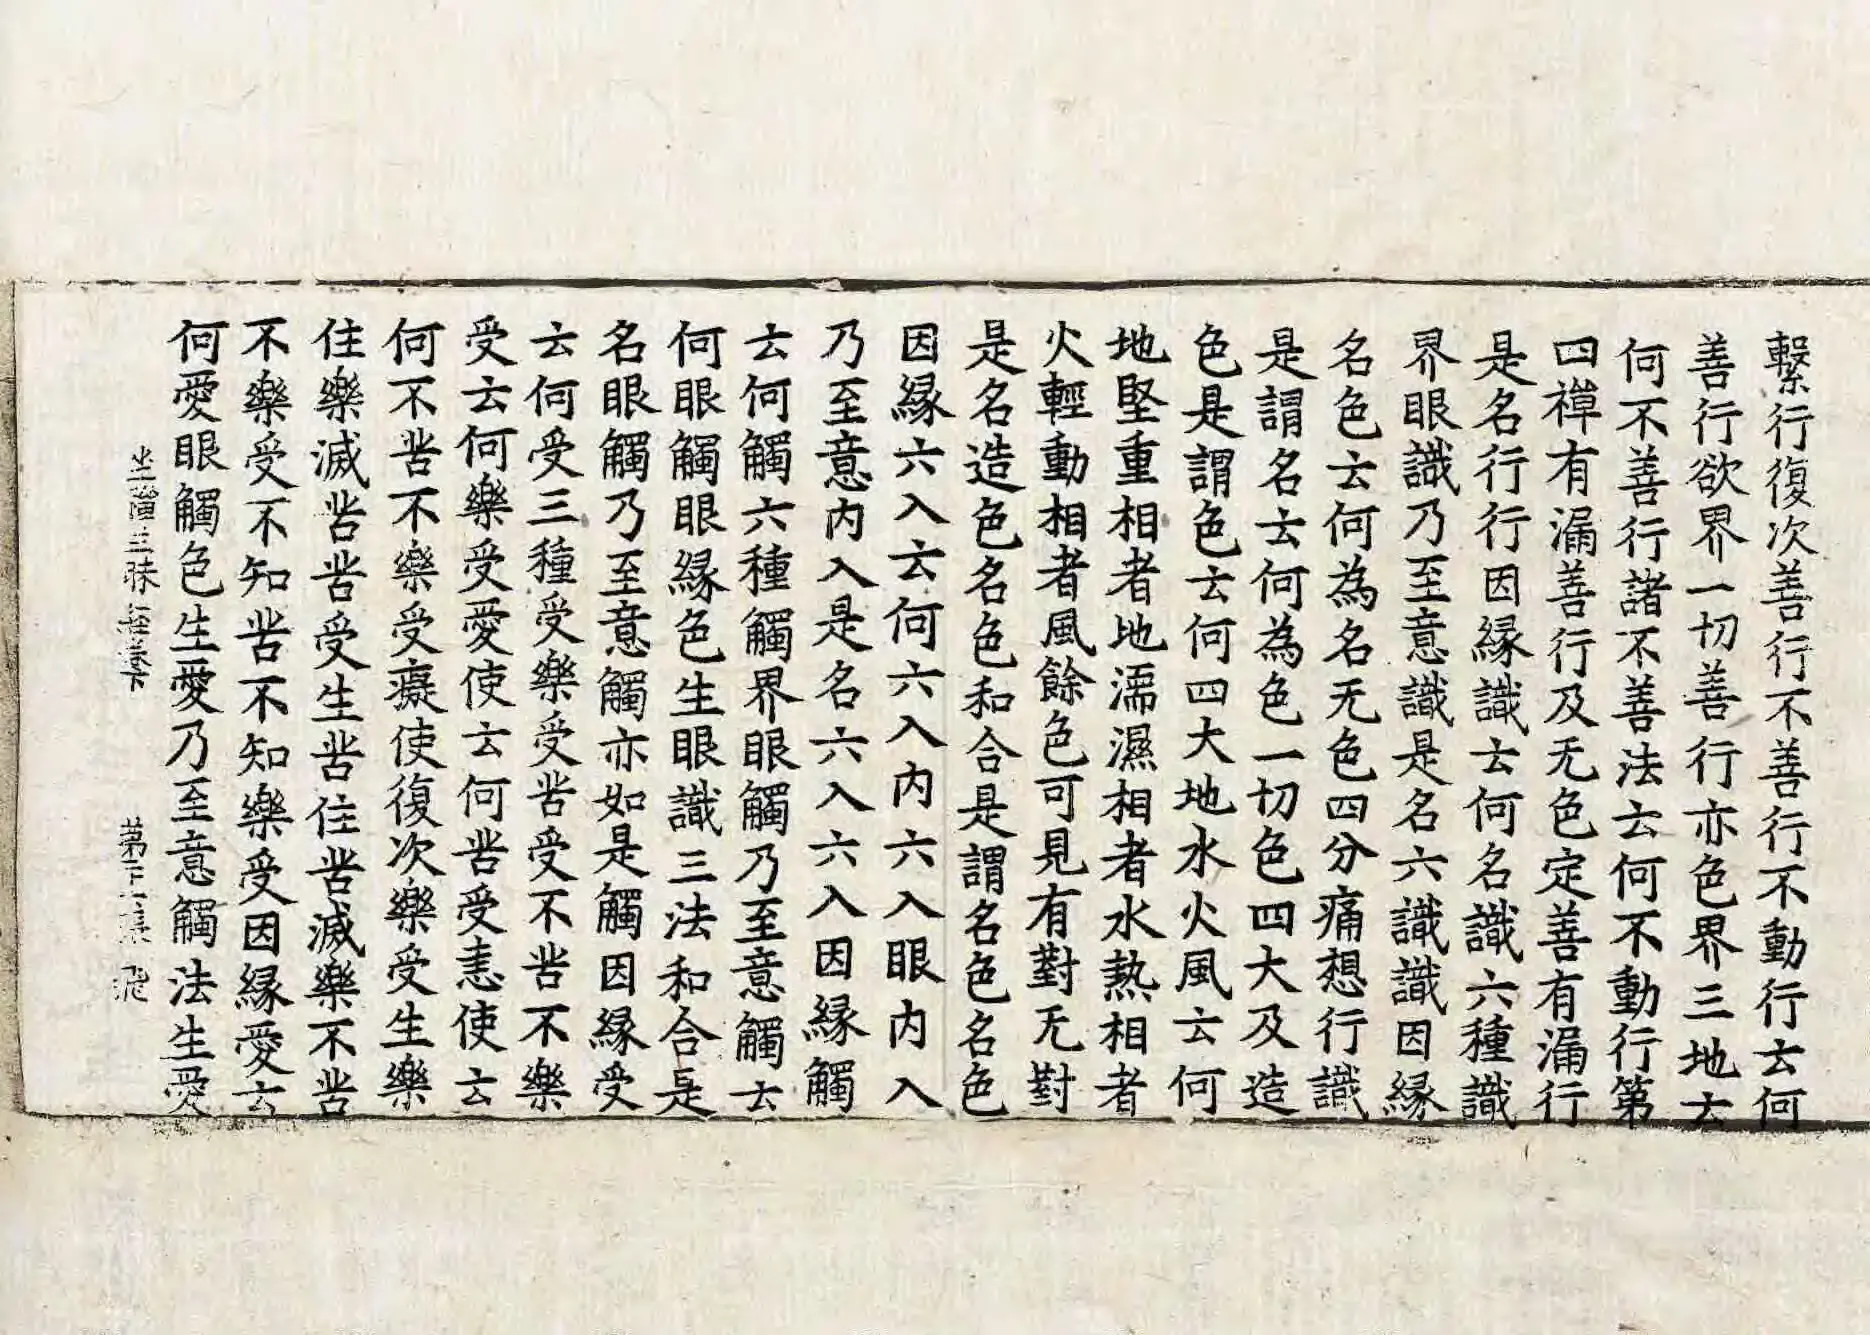 繫行復次善行不善行不動行去何
善行欲界一切善行亦色界三地去
何不善行諸不善法去何不動行第
四禪有漏善行及无色定善有漏行
是名行行因緣識去何名識六種識
界眼識乃至意識是名六識識因緣
名色去何為名无色四分痛想行識
是謂名去何為色一切色四大及造
色是謂色去何四大地水火風去何
地堅重相者地濡濕相者水熱相者
火輕動相者風餘色可見有對无對
是名造色名色和合是謂名色名色
因緣六入去何六入內六入眼內入
乃至意內入是名六入六入因緣觸
去何觸六種觸界眼觸乃至意觸去
何眼觸眼緣色生眼識三法和合是
名眼觸乃至意觸亦如是觸因緣受
去何受三種受樂受苦受不苦不樂
受去何樂受愛使去何苦受恚使去
何不苦不樂受癡使復次樂受生樂
住樂滅苦苦受生苦住苦滅樂不苦
不樂受不知苦不知樂受因緣愛去
何愛眼觸色生愛乃至意觸法生愛
坐禪三昧經卷下　第二張　飛